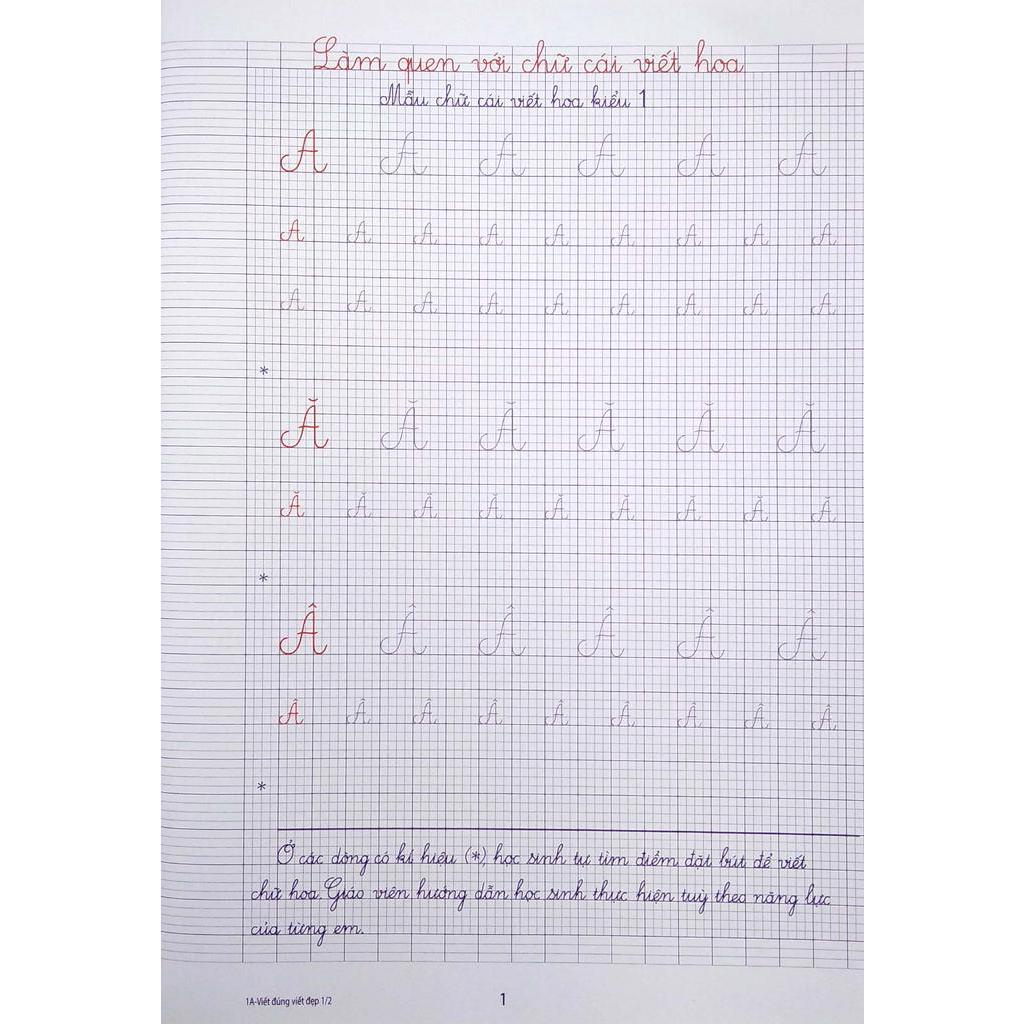 Làm quen với chữ cái viết hoa
Mẫu chữ cái viết hoa kiểu 1
A A A A A A
A A A A A A A A A
A A A A A A A A A
*
Ă Ă Ă Ă Ă Ă
Ă Ă Ă Ă Ă Ă Ă Ă Ă
*
Â Â Â Â Â Â
Â Â Â Â Â Â Â Â Â
*
Ở các dòng có kí hiệu (*), học sinh tự tìm điểm đặt bút để viết
chữ hoa. Giáo viên hướng dẫn học sinh thực hiện tuỳ theo năng lực
của từng em.
1A-Viết đúng viết đẹp 1/2
1